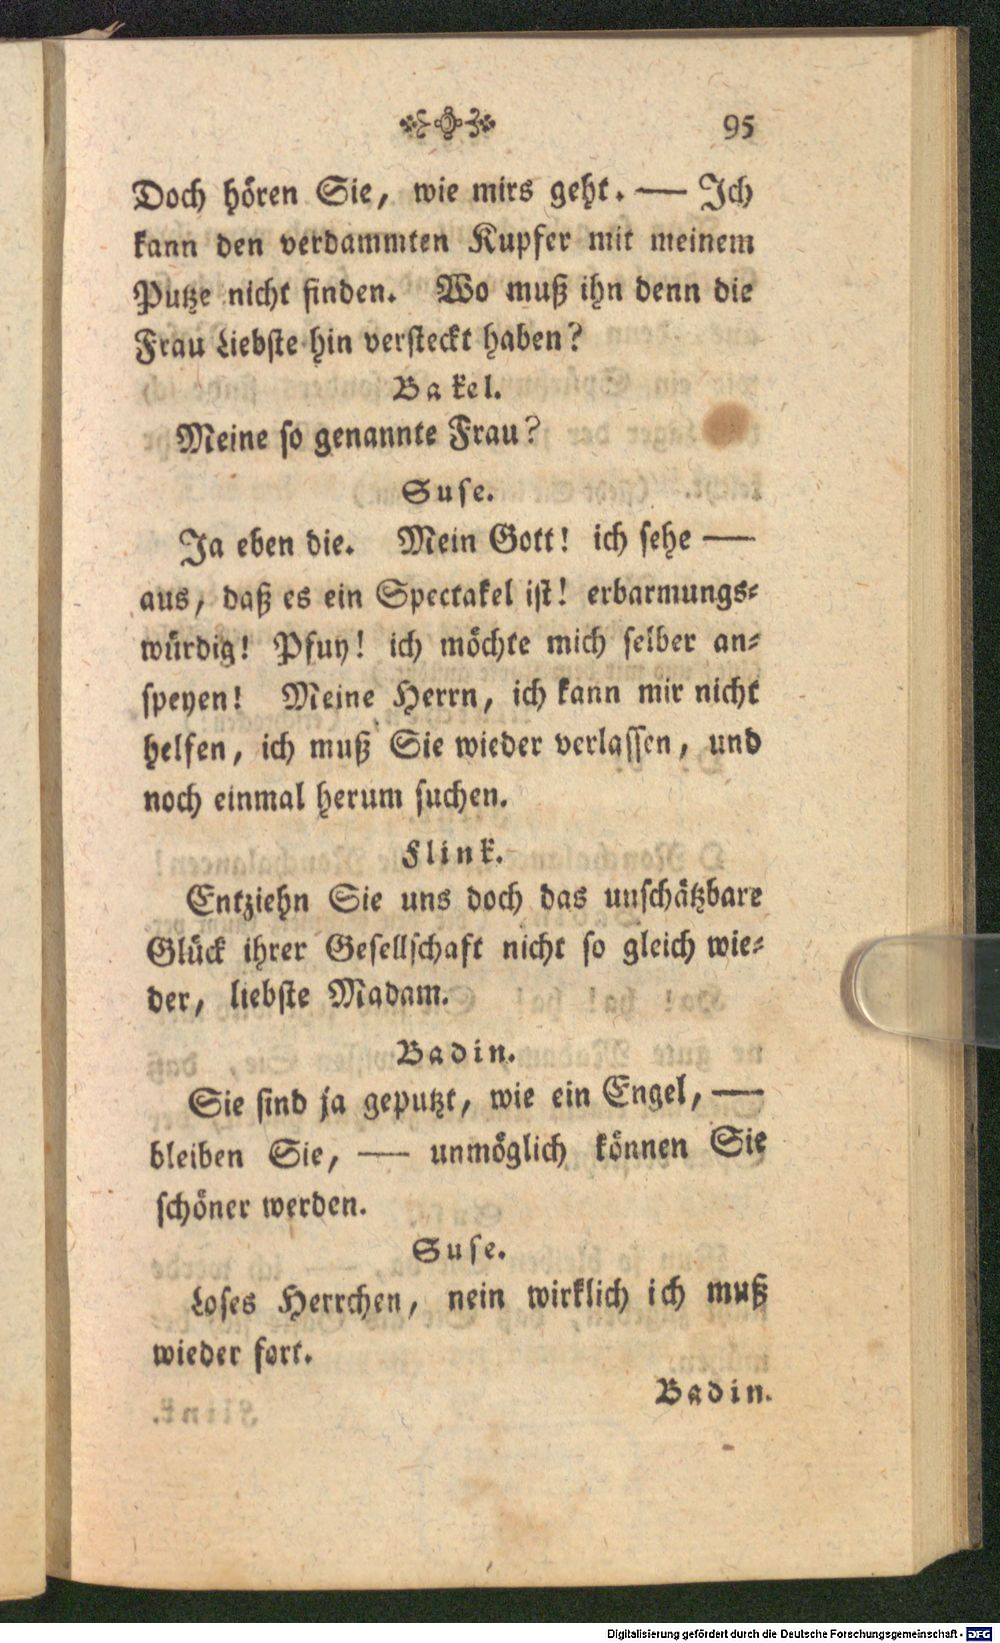 95
Doch hören Sie, wie mirs geht. — Ich
kann den verdammten Kupfer mit meinem
Putze nicht finden. Wo muß ihn denn die
Frau Liebste hin versteckt haben?
Bakel.
Meine so genannte Frau?
Suse.
Ja eben die. Mein Gott! ich sehe —
aus, daß es ein Spectakel ist! erbarmungs-
würdig! Pfuy! ich möchte mich selber an-
speyen! Meine Herrn, ich kann mir nicht
helfen, ich muß Sie wieder verlassen, und
noch einmal herum suchen.
Flink.
Entziehn Sie uns doch das unschätzbare
Glück ihrer Gesellschaft nicht so gleich wie-
der, liebste Madam.
Badin.
Sie sind ja geputzt, wie ein Engel, —
bleiben Sie, — unmöglich können Sie
schöner werden.
Suse.
Loses Herrchen, nein wirklich ich muß
wieder fort.
Badin.
Digitalisierung gefördert durch die Deutsche Forschungsgemeinschaft - DFG